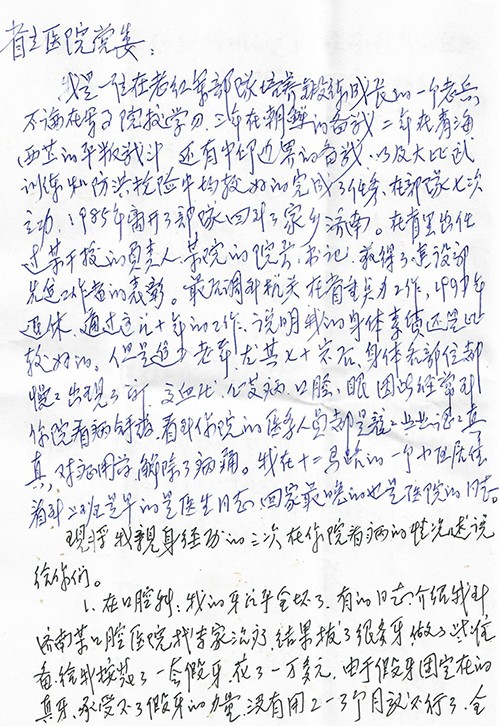 省立医院党委:
我是一位在老红军部队培养锻炼成长的一个老兵
不论在军了院校学习、三年在朝鲜的备战 二年在青海
西共的平叛战斗 还有中印边界的备战、以及大比武
训练和防洪抢险中均较好的完成了任务、在部队七次
立功、1985年离开了部队回到了家乡济南。在省里出任
过某干校的负责人、某院的院长、书记、获得了建设部
先进工作者的表彰。最后调到机关在省直 工作,1997年
退休、通过这几十年的工作、说明我的身体素质还是比
较好的。但是进入老年尤其七十岁后、身体和部位都
慢慢出现了 病 口腔、眼 因此经常到
你院看病 看到你院的医务人员都是 业业认认真
真,对症用药,解除了病痛。我在十二马路的一个小区居住
看到上班是早的是医生同志、回家最晚的也是医院的同志。
现将我亲身经历的三次在你院看病的情况述说
给你们。
1、在口腔科:我的牙几乎全坏了、有的同志介绍我到
济南某口腔医院找李家 结果拔了很多牙、做了
备、给我按装了一套假牙、花了一万多元、由于假牙固定在的
真牙、承受不了假牙的力量、没有用2-3个月就不行了、全